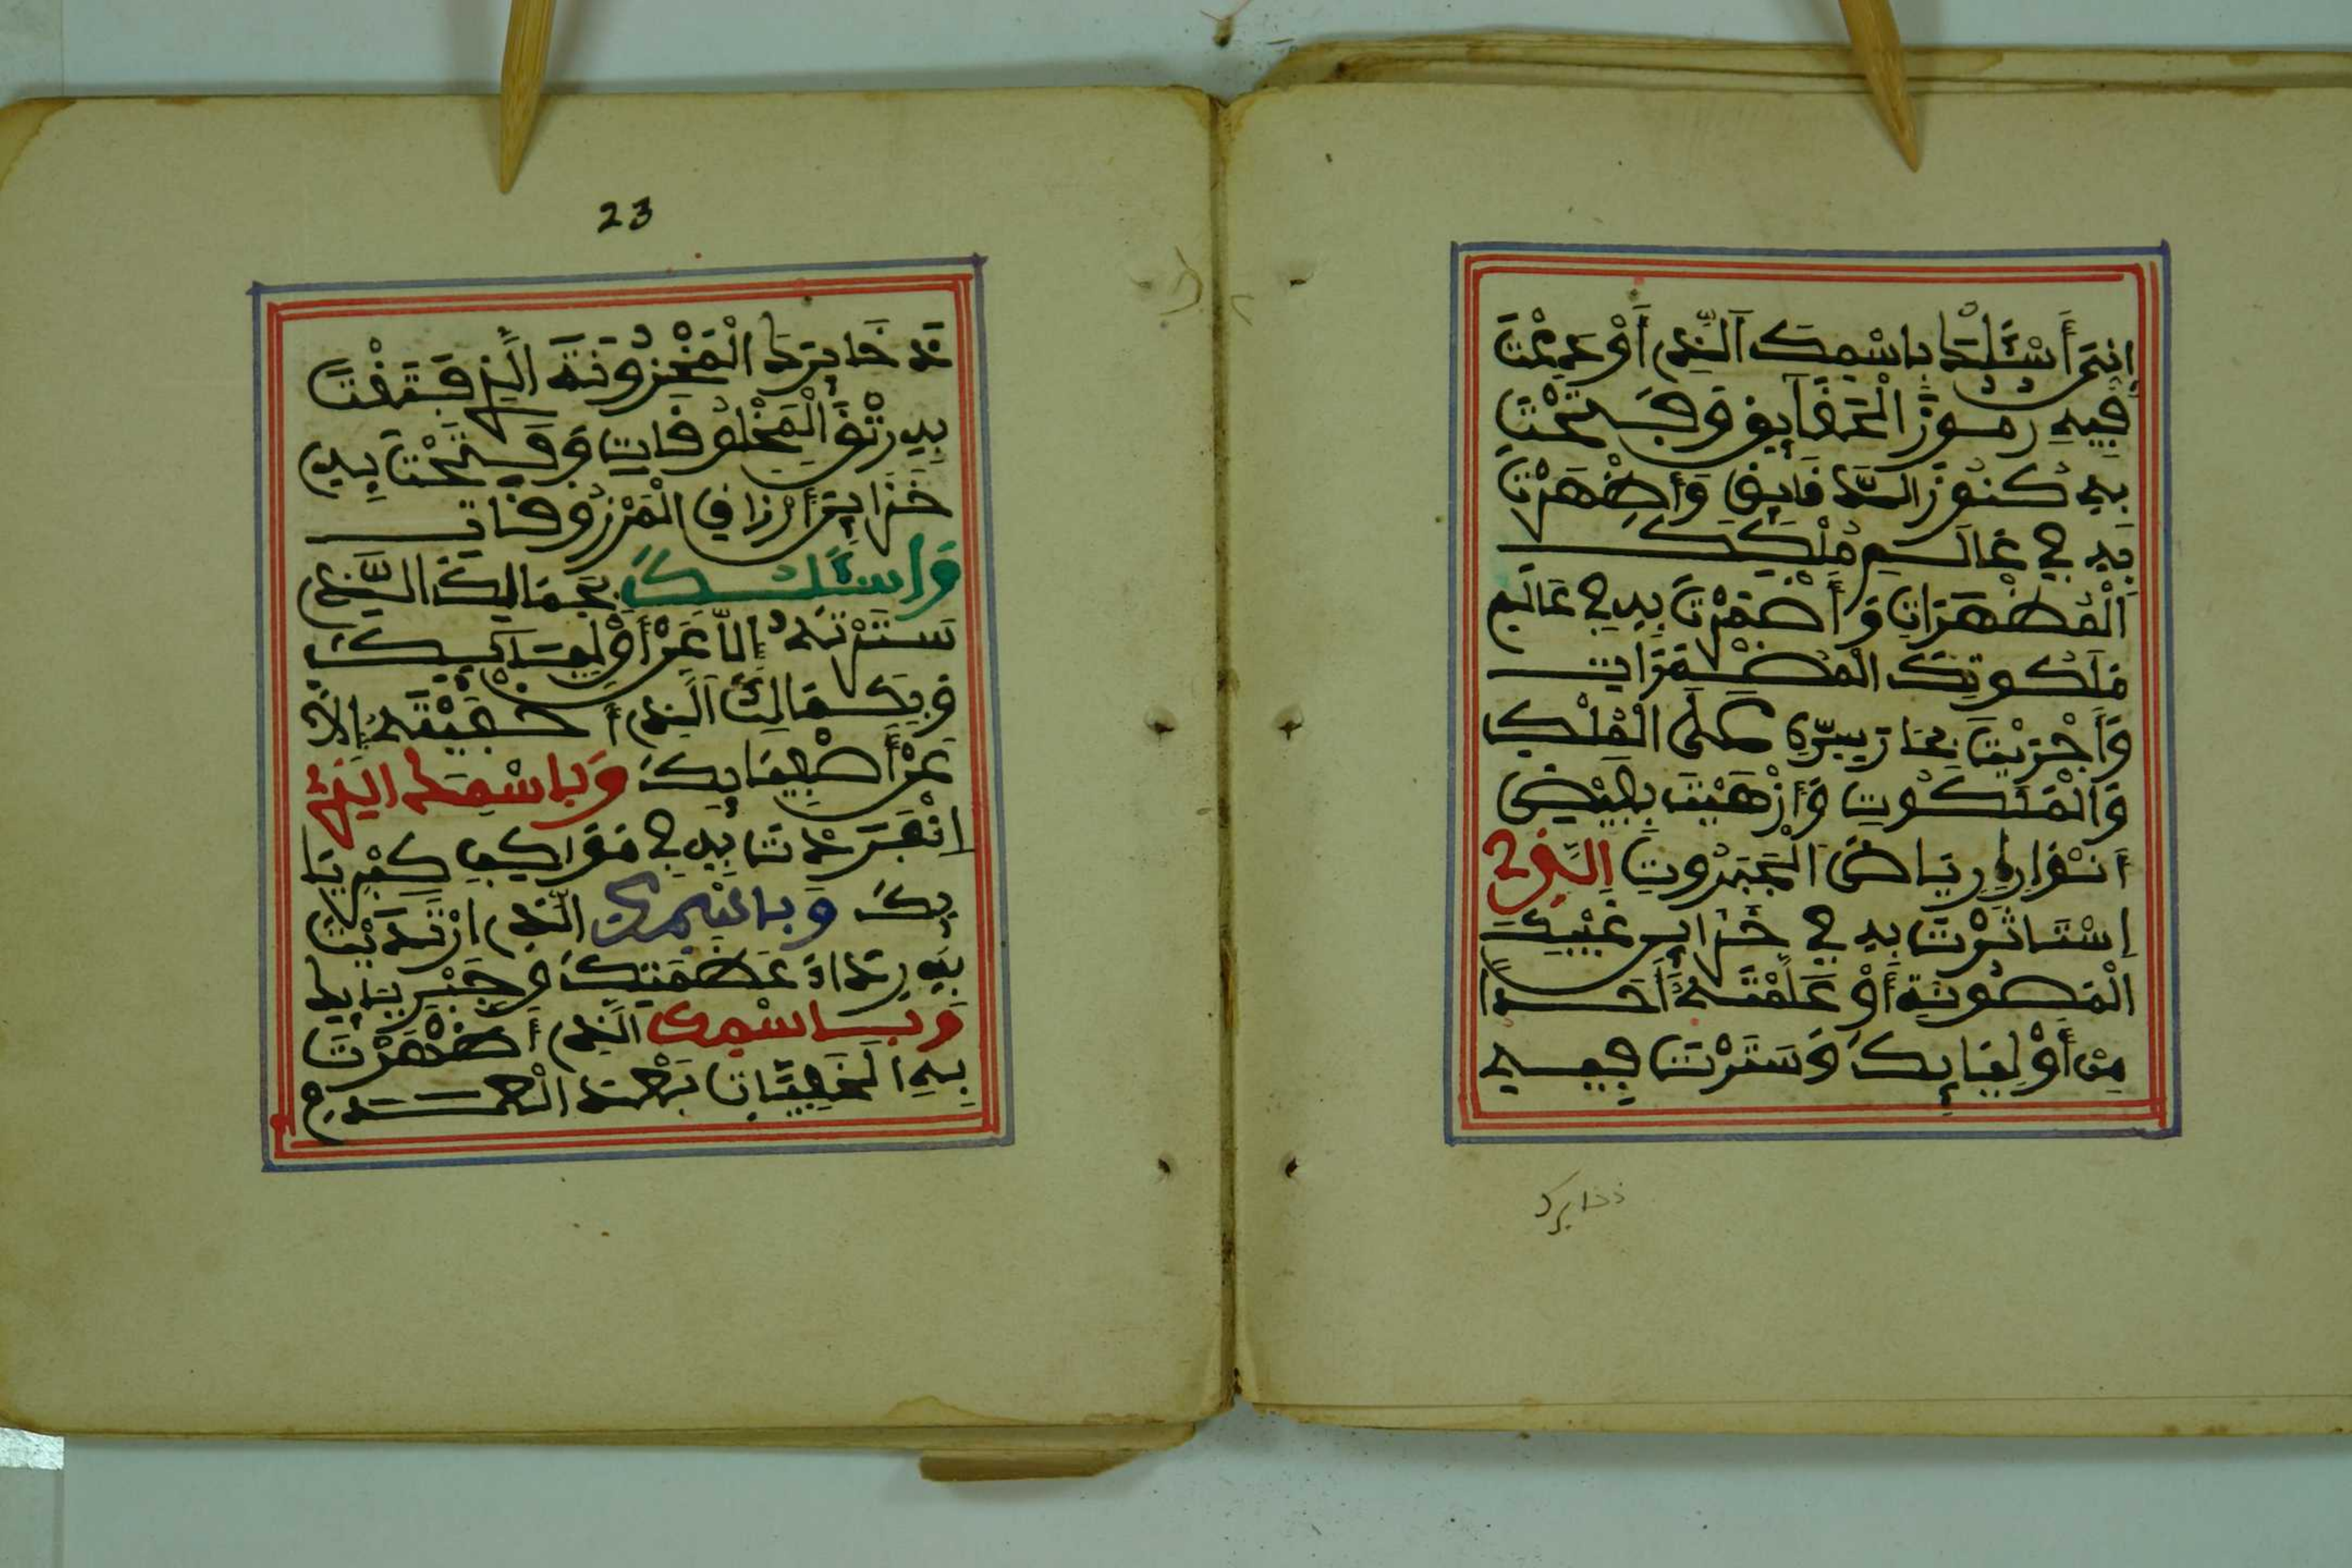 إِنِّي أَسْئَلُكَ بِاسْمِكَ الَّذِي أَوْدَعْتَ
فِيهِ رُمُوزَ الْحَقَايِقِ وَفَتَحْتَ
بِهِ كُنُوزَ الدَّقَايِقِ وَأَظْهَرْتَ
بِهِ فِي عَالَمِ مُلْكِكَ
الْمُظْهَرَاتِ وَأَضْمَرْتَ بِهِ فِي عَالَمِ
مَلَكُوتِكَ الْمُضْمَرَاتِ
وَأَجْرَيْتَ بِحَارَ سِرِّهِ عَلَى الْفُلْكِ
وَالْمَلَكُوتِ وَأَزْهَيْتَ بِفَيْضِ
أَنْوَارِهِ رِيَاضَ الْجَبَرُوتِ الَّذِي
إِسْتَاثَرْتَ بِهِ فِي خَزَايِنِ غَيْبِكَ
الْمَصُونَةِ أَوْ عَلَّمْتَهُ أَحَدًا
مِنْ أَوْلِيَايِكَ وَسَتَرْتَ فِيهِ
ذخايرك
23
ذَخَايِرَكَ الْمَخْزُونَةَ الَّذِي فَتَقْتَ
بِهِ رَتْقَ الْمَخْلُوقَاتِ وَفَتَحْتَ بِهِ
خَزَايِنَ أَرْزَاقِ الْمَرْزُوقَاتِ
وَاسْئَلُكَ بِجَمَالِكَ الَّذِي
سَتَرْتَهُ إِلاَّ عَنْ أَوْلِيَايِكَ
وَبِكَمَالِكَ الَّذِي أَخْفَيْتَهُ إِلاَّ
عَنْ أَصْفِيَايِكَ وَبِاسْمِكَ الَّذِي
انْفَرَدْتَ بِهِ فِي مَوَاكِبِ كِبْرِيَا
يِكَ وَبِاسْمِكَ الَّذِي ارْتَدَيْتَ
بِهِ رِدَاءَ عَظَمَتِكَ وَجَبْرِيَايِكَ
وَبِاسْمِكَ الَّذِي أَظْهَرْتَ
بِهِ الْخَفِيَّاتِ بَعْدَ الْعَدَمِ